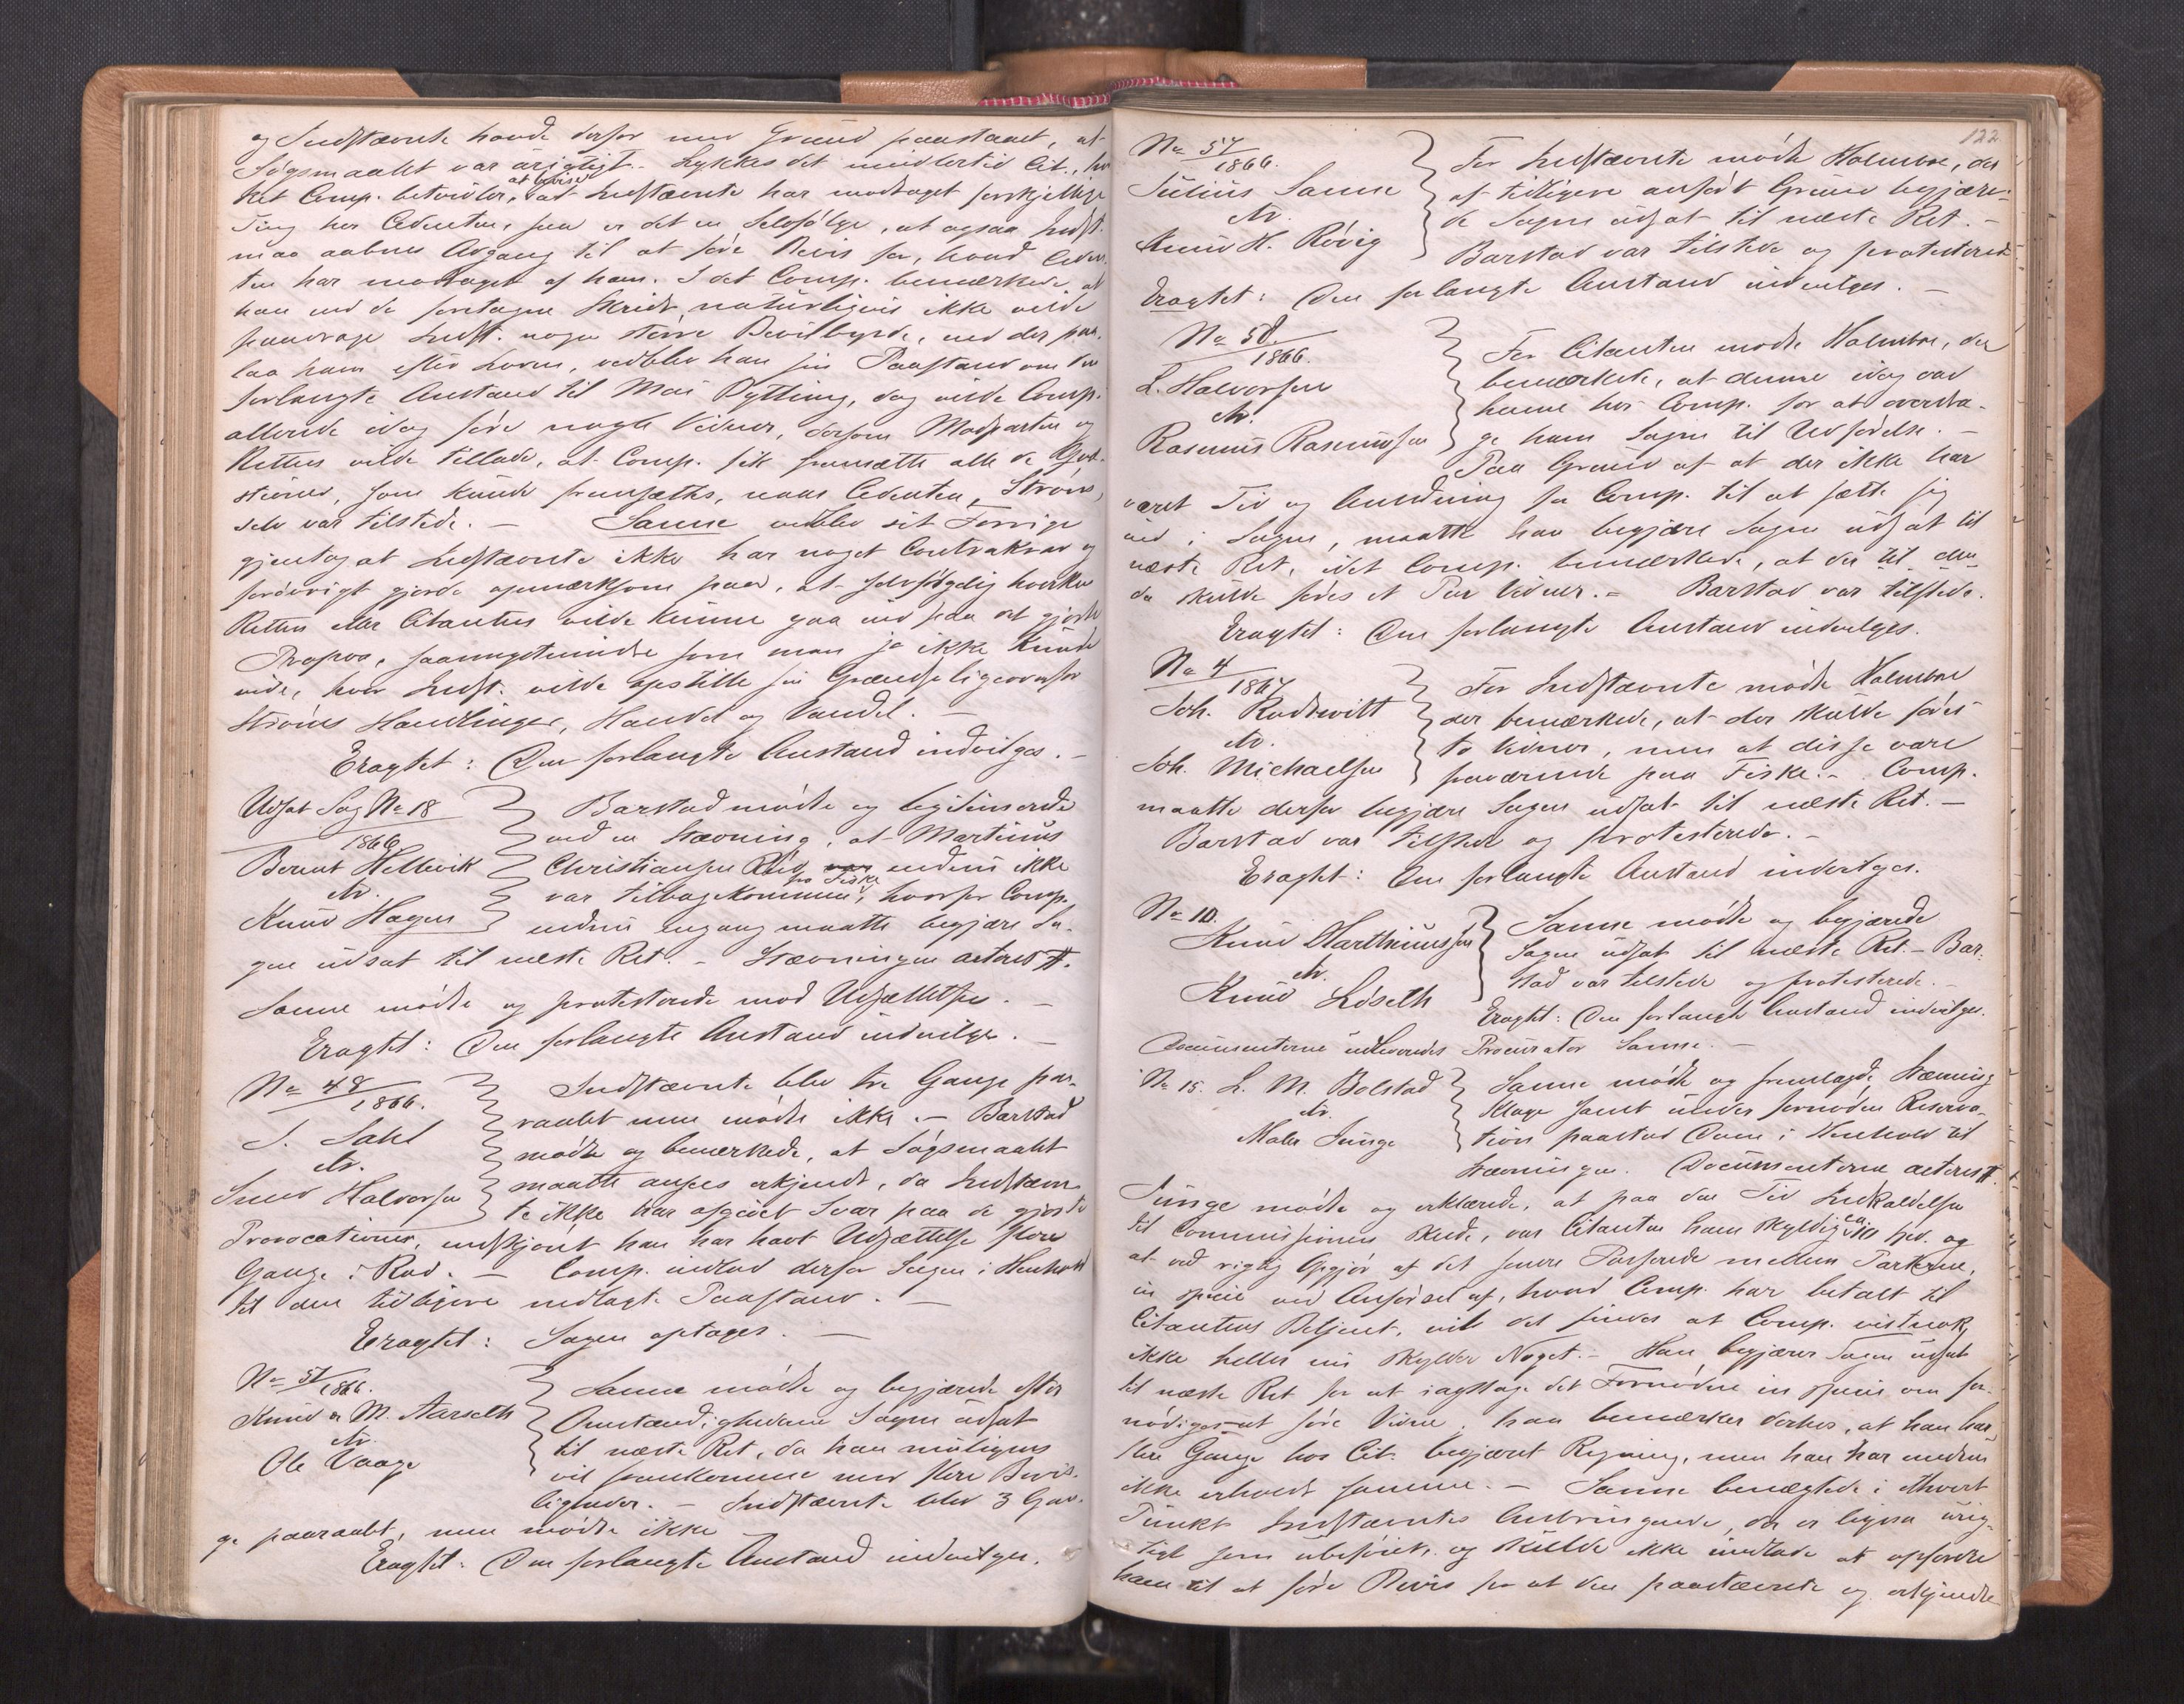 og Indstævnte havde derfor med Grund paastaaet, at
Søgsmaalet var urigtigt. Lykkes det imidlertid Cit., hvad
Ret Comp. betvivler, at bevise at Indstævnte har modtaget forskjellige
Ting hos Cedenten, saa er det en Selvfølge, at ogsaa Indst.
maa aabnes Adgang til at føre Bevis for, hvad Ceden-
ten har modtaget af ham. I det Comp. bemærkede at
han ved de foretagne Skridt naturligvis ikke vilde
paadrage Indst. nogen større Bevisbyrde, end der paa-
laa ham efter Loven, vedblev han sin Paastand om den
forlangte Anstand til Mai Sytting, dog vilde Comp.
allerede idag føre nogle Vidner, dersom Modparten og
Retten vilde tillade, at Comp. fik fremsætte alle de Qvæ-
stioner, som kunde fremsættes, naar Cedenten, Strøm,
selv var tilstede. — Sanne vedblev sit Forrige
gjentog at Indstævnte ikke har noget Contrakrav og
forøvrigt gjorde opmærksom paa, at selvfølgelig hverken
Retten eller Citanten vilde kunne gaa ind paa det gjorte
Propos, saameget mindre som man jo ikke kunde
vide, hvor Indst. vilde opstille sin Grændse ligeoverfor
Strøms Handlinger, Handel og Vandel. —
Eragtet: Den forlangte Anstand indvilges. —
Udsat Sag No 18
1866
Berent Hellevik
ctr.
Knud Hagen
Barstad mødte og legitimerede
ved en Stævning, at Martinus
Christiansen Røv endnu ikke
var tilbagekommen fra Fiske, hvorfor Comp.
endnu engang maatte begjære Sa-
gen udsat til næste Ret. — Stævningen acteres #.
Sanne mødte og protesterede mod Udsættelsen. —
Eragtet: Den forlangte Anstand indvilges. —
No 48
1866.
S. Dahl
ctr.
Knud Halvorsen
Indstævnte blev tre Gange paa-
raabt men mødte ikke. — Barstad
mødte og bemærkede, at Søgsmaalet
maatte ansees erkjendt, da Indstævn-
te ikke har afgivet Svar paa de gjorte
Provocationer, endskjønt han har havt Udsættelse flere
Gange i Rad. — Comp. indlod derfor Sagen i Henhold
til den tidligere nedlagte Paastand. —
Eragtet: Sagen optages. —
No 51/1866.
Knud og M. Aarseth
ctr.
Ole Vaage
Sanne mødte og begjærede efter
Omstændighederne Sagen udsat
til næste Ret, da han muligens
vil fremkomme med flere Bevis-
ligheder. — Indstævnte blev 3 Gan-
ge paaraabt, men mødte ikke
Eragtet: Den forlangte Anstand indvilges.
122
No 57
1866.
Julius Sanne
ctr.
Knud H. Røvig
For Indstævnte mødte Holmboe, der
af tidligere anført Grund begjære-
de Sagen udsat til næste Ret. —
Barstad var tilstede og protesterede
Eragtet: Den forlangte Anstand indvilges. —
No 58.
1866.
L. Halvorsen
ctr.
Rasmus Rasmussen
For Citanten mødte Holmboe, der
bemærkede, at denne idag var
henne hos Comp. for at overdra-
ge ham Sagen til Udførelse. —
Paa Grund af at der ikke har
været Tid og Anledning for Comp. til at sætte sig
ind i Sagen, maatte han begjære Sagen udsat til
næste Ret, idet Comp. bemærkede, at der til den-
da skulde føres et Par Vidner. — Barstad var tilstede.
Eragtet: Den forlangte Anstand indvilges.
No 4
1867
Joh. Rodtwitt
ctr.
Joh. Michaelsen
For Indstævnte mødte Holmboe
der bemærkede, at der skulde føres
to Vidner, men at disse vare
fraværende paa Fiske. — Comp.
maatte derfor begjære Sagen udsat til næste Ret. —
Barstad var tilstede og protesterede. —
Eragtet: Den forlangte Anstand indvilges.
No 10.
Knud Marthinussen
ctr.
Knud Løseth
Sanne mødte og begjærede
Sagen udsat til næste Ret. — Bar-
stad var tilstede og protesterede. —
Eragtet: Den forlangte Anstand indvilges.
Documenterne udleveredes Procurator Sanne. —
No 15. L. M. Bolstad
ctr.
Maler Junge
Sanne mødte og fremlagde Stævning
Klage samt under fornøden Reserva-
tion paastod Dom i Henhold til
Stævningen. Documenterne acteres #.
Junge mødte og erklærede, at paa den Tid Indkaldelsen
til Commissionen skede, var Citanten ham skyldig ca. Spd. og
at ved rigtig Opgjør af det senere Passerede mellem Parterne,
in specie ved Anførsel af, hvad Comp. har betalt til
Citantens Betjent, vil det findes at Comp. vistnok
ikke heller nu skylder Noget. — Han begjærer Sagen udsat
til næste Ret for at iagttage det Fornødne in specie om for-
nødiges at føre Vidne, han bemærker derhos, at han har
flere Gange hos Cit. begjæret Regning, men han har endnu
ikke erholdt samme. — Sanne benægtede i ethvert
Punkt Indstævntes Anbringende, der er ligesaa urig-
tigt som ubeføiet, og skulde ikke undlade at opfordre
ham til at føre Bevis for at den paastævnte og erkjendte